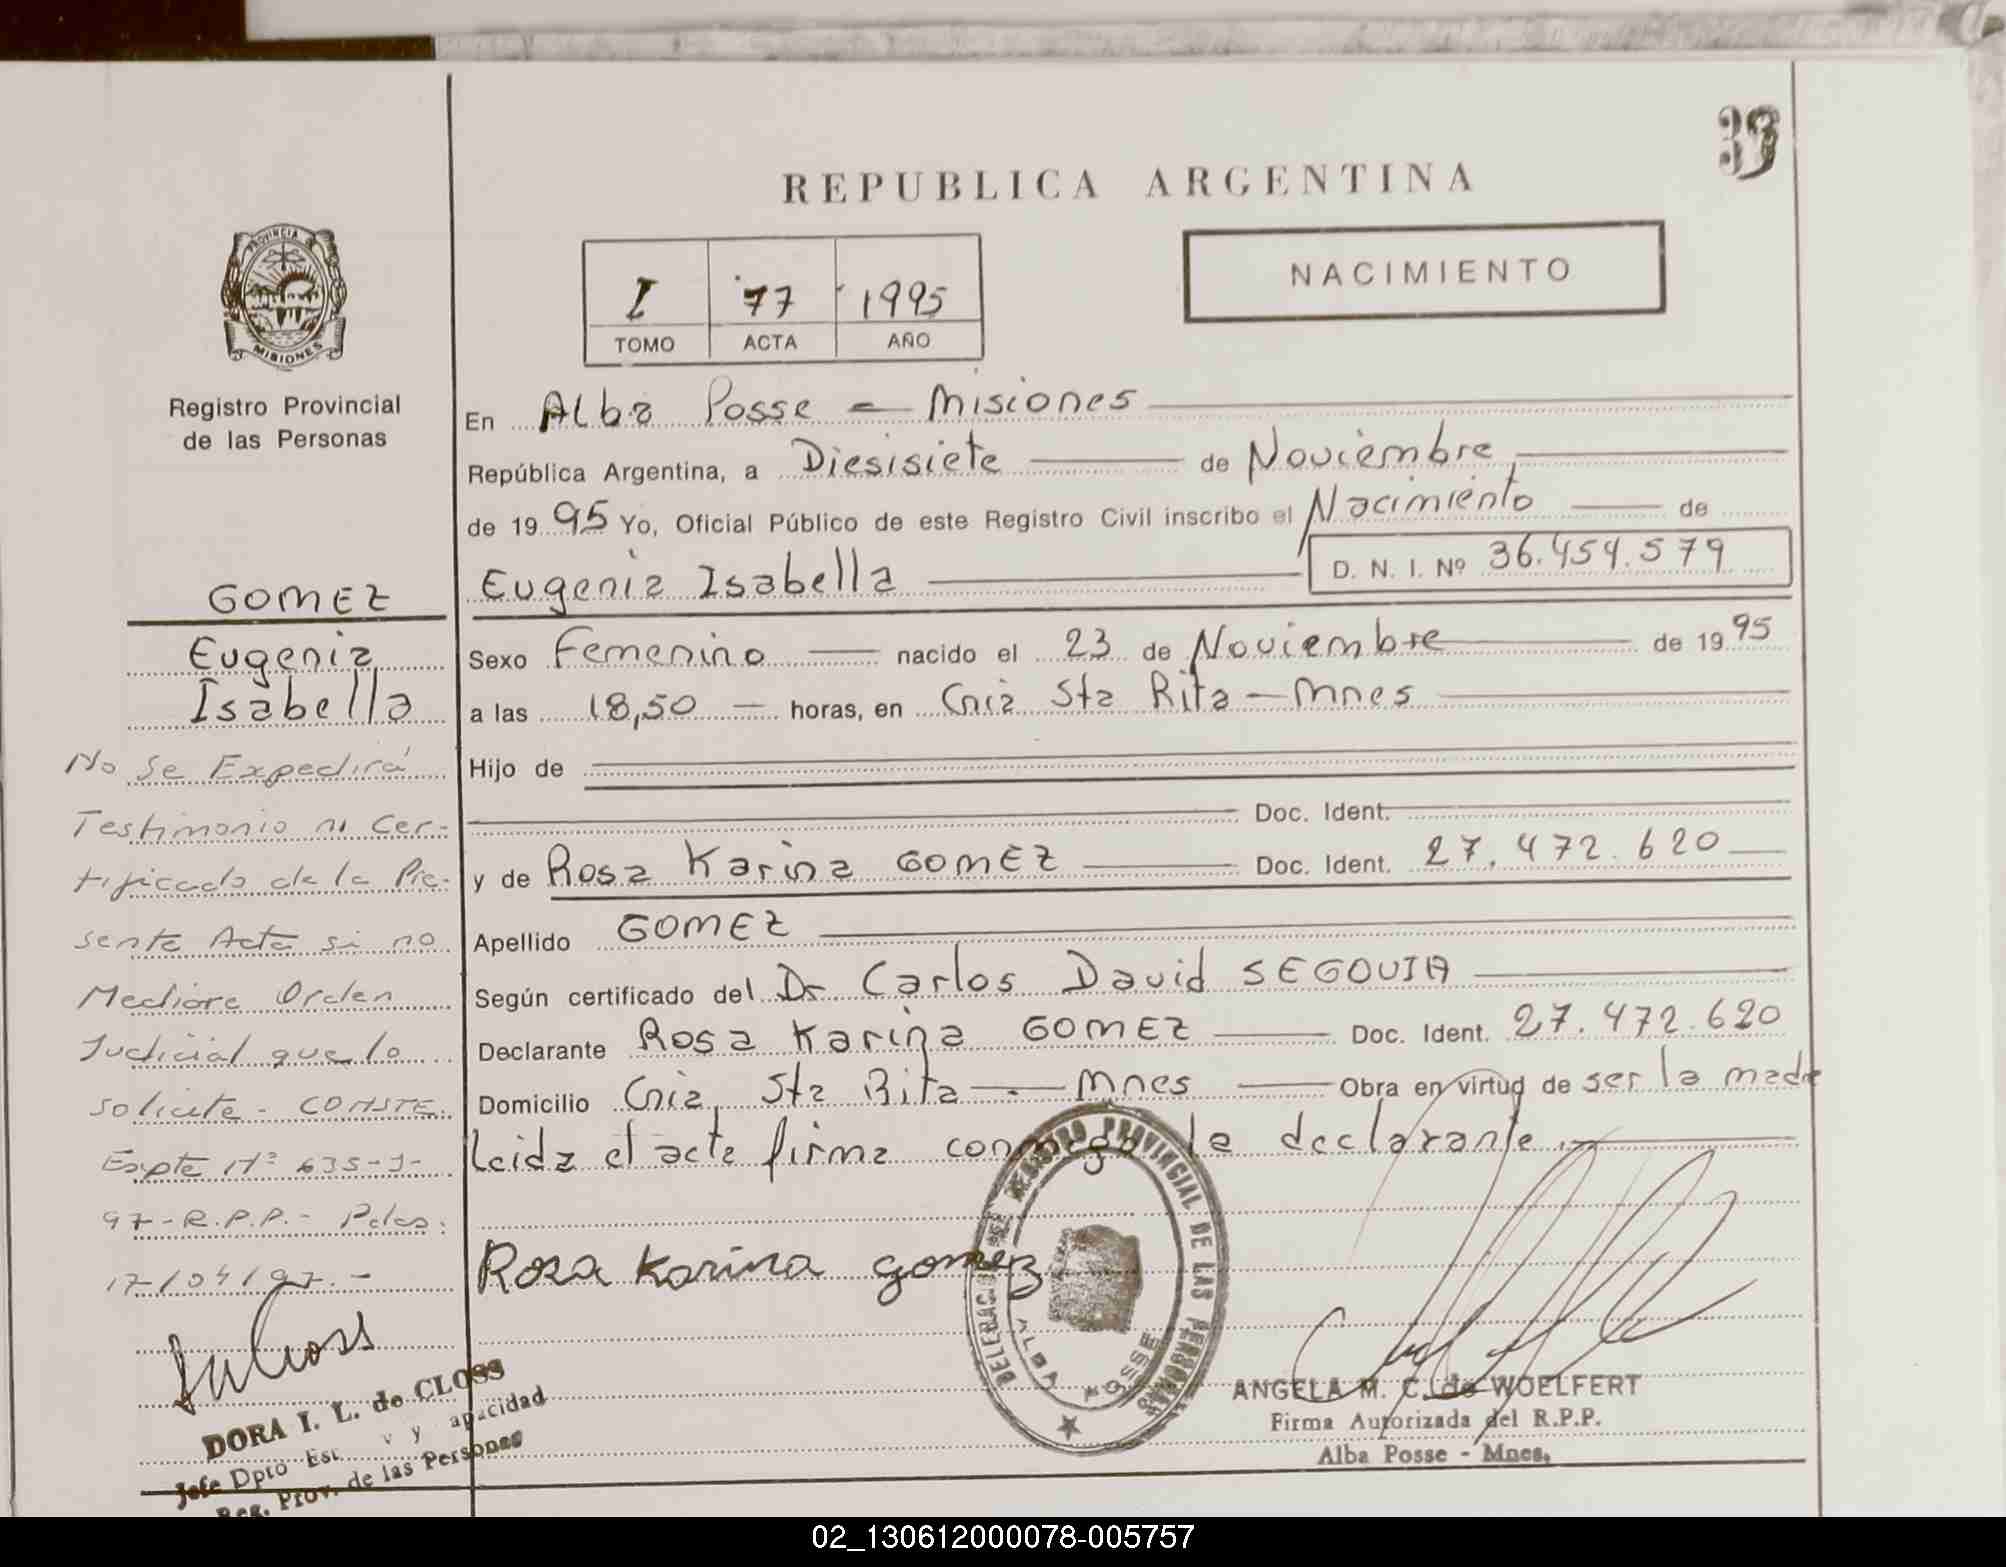 33
REPUBLICA ARGENTINA
PROVINCIA DE
MISIONES
Registro Provincial
de las Personas
NACIMIENTO
I 77 1995
TOMO ACTA AÑO
En Alba Posse - Misiones
República Argentina, a Diesisiete de Noviembre
de 1995 Yo, Oficial Público de este Registro Civil inscribo el Nacimiento de
Eugenia Isabella D. N. I. Nº 36.454.579
Sexo Femenino nacido el 23 de Noviembre de 1995
a las 18,50 horas, en Cnia Sta Rita - Mnes
Hijo de
Doc. Ident.
y de Rosa Karina GOMEZ Doc. Ident. 27.472.620
Apellido GOMEZ
Según certificado del Dr Carlos David SEGOVIA
Declarante Rosa Karina GOMEZ Doc. Ident. 27.472.620
Domicilio Cnia, Sta Rita - Mnes Obra en virtud de ser la madre
Leida el acta firma conmigo la declarante.
Rosa Karina gomez
DELEGACION REGISTRO PROVINCIAL DE LAS PERSONAS
ALBA POSSE
ANGELA M. C. de WOELFERT
Firma Autorizada del R.P.P.
Alba Posse - Mnes.
GOMEZ
Eugenia
Isabella
No Se Expedirá
Testimonio ni Cer-
tificado de la Pre-
sente Acta si no
Mediare Orden
Judicial que lo
solicite - CONSTE
Expte Nº 635-J-
97-R.P.P.- Pdas.
17/04/97.-
DORA I. L. de CLOSS
Jefe Dpto Est y apacidad
Reg. Prov. de las Personas
02_130612000078-005757